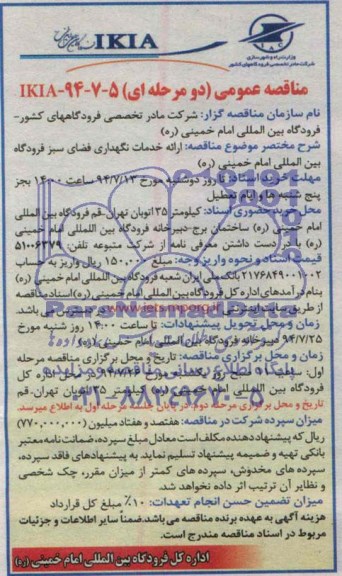 IKIA
IAC
وزارت راه و شهرسازی
شرکت مادر تخصصی فرودگاههای کشور
مناقصه عمومی (دو مرحله ای) IKIA-۹۴-۷-۵
نام سازمان مناقصه گزار: شرکت مادر تخصصی فرودگاههای کشور-
فرودگاه بین المللی امام خمینی (ره)
شرح مختصر موضوع مناقصه: ارائه خدمات نگهداری فضای سبز فرودگاه
بین المللی امام خمینی (ره)
مهلت خرید اسناد: تا روز دوشنبه مورخ ۹۴/۷/۱۳ ساعت ۱۴:۰۰ بجز
پنج شنبه ها و ایام تعطیل
محل خرید حضوری اسناد: کیلومتر ۳۵ اتوبان تهران-قم فرودگاه بین المللی
امام خمینی (ره) ساختمان برج-دبیرخانه فرودگاه بین اللملی امام خمینی
(ره) با در دست داشتن معرفی نامه از شرکت متبوعه تلفن: ۵۱۰۰۶۳۷۹
قیمت اسناد و نحوه واریز وجه: مبلغ ۱۵۰.۰۰۰ ریال واریز به حساب
۲۱۷۶۸۴۹۰۰۱۰۰۲ بانک ملی ایران شعبه فرودگاه بین المللی امام خمینی (ره)
بنام درآمدهای اداره کل فرودگاه بین المللی امام خمینی (ره) اسناد مناقصه
از طریق سایت اینترنتی www.iets.mporg.ir قابل دسترس می باشد.
زمان و محل تحویل پیشنهادات: تا ساعت ۱۴:۰۰ روز شنبه مورخ
۹۴/۷/۲۵ دبیرخانه فرودگاه بین المللی امام خمینی (ره)
زمان و محل برگزاری مناقصه: تاریخ و محل برگزاری مناقصه مرحله
اول: ساعت صبح روز یکشنبه مورخ ۹۴/۷/۲۶ در محل اداره کل
فرودگاه بین المللی امام خمینی (ره) کیلومتر ۳۵ اتوبان تهران-قم
تاریخ و محل برگزاری مرحله دوم: در پایان جلسه مرحله اول به اطلاع میرسد.
میزان سپرده شرکت در مناقصه: هفتصد و هفتاد میلیون (۷۷۰.۰۰۰.۰۰۰)
ریال که پیشنهاد دهنده مکلف است معادل مبلغ سپرده، ضمانت نامه معتبر
بانکی تهیه و ضمیمه پیشنهاد تسلیم نماید. به پیشنهادهای فاقد سپرده،
سپرده های مخدوش، سپرده های کمتر از میزان مقرر، چک شخصی
و نظایر آن ترتیب اثر داده نخواهد شد.
میزان تضمین حسن انجام تعهدات: ۱۰٪ مبلغ کل قرارداد
هزینه آگهی به عهده برنده مناقصه می باشد. ضمناً سایر اطلاعات و جزئیات
مربوط در اسناد مناقصه مندرج است.
اداره کل فرودگاه بین المللی امام خمینی (ره)
پایگاه اطلاع رسانی مناقصه و مزایده
۰۲۱-۸۸۳۴۹۶۷۰-۵